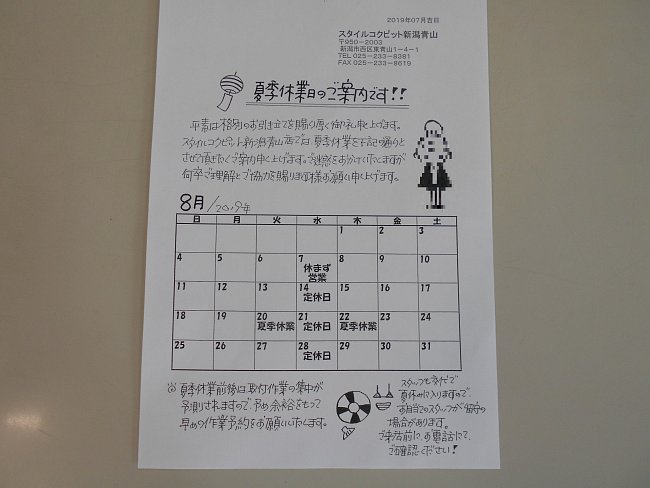 2019年07月吉日
スタイルコクピット新潟青山
〒950-2003
新潟市西区東青山1-4-1
TEL 025-233-8381
FAX 025-233-8619
夏季休業日のご案内です!!
平素は格別のお引き立てを賜り厚く御礼申し上げます。
スタイルコクピット新潟青山店では夏季休業を下記の通りと
させて頂きたくご案内申し上げます。ご迷惑をおかけいたしますが
何卒ご理解とご協力を賜ります様お願い申し上げます。
8月/2019年
日 月 火 水 木 金 土
1 2 3
4 5 6 7 8 9 10
休まず
営業
11 12 13 14 15 16 17
定休日
18 19 20 21 22 23 24
夏季休業 定休日 夏季休業
25 26 27 28 29 30 31
定休日
夏季休業前後は取付作業の集中が
予測されますので、予め余裕をもって
早めの作業予約をお願いいたします。
スタッフも交代で
夏休みに入りますので、
お目当てのスタッフが留守の
場合があります。
ご来店前に、お電話にて、
ご確認ください!